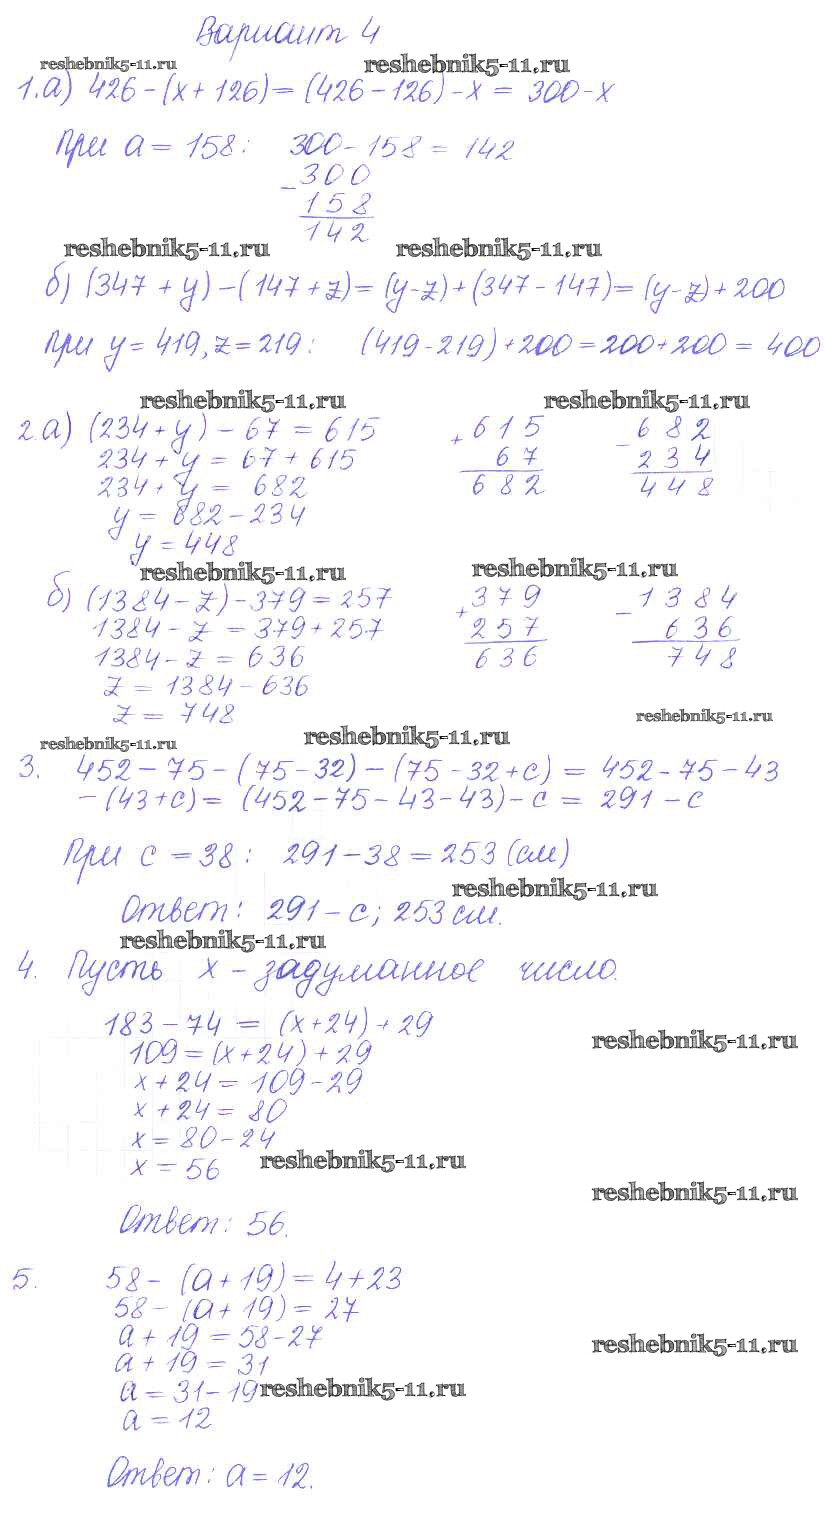 Вариант 4
reshebnik5-11.ru reshebnik5-11.ru
1.а) 426 - (x + 126) = (426 - 126) - x = 300 - x
При a = 158: 300 - 158 = 142
- 300
158
142
reshebnik5-11.ru reshebnik5-11.ru
б) (347 + y) - (147 + z) = (y - z) + (347 - 147) = (y - z) + 200
При y = 419, z = 219: (419 - 219) + 200 = 200 + 200 = 400
reshebnik5-11.ru reshebnik5-11.ru
2.а) (234 + y) - 67 = 615 + 615 - 682
234 + y = 67 + 615 67 234
234 + y = 682 682 448
y = 682 - 234
y = 448
reshebnik5-11.ru reshebnik5-11.ru
б) (1384 - z) - 379 = 257 + 379 - 1384
1384 - z = 379 + 257 257 636
1384 - z = 636 636 748
z = 1384 - 636
z = 748
reshebnik5-11.ru
reshebnik5-11.ru reshebnik5-11.ru
3. 452 - 75 - (75 - 32) - (75 - 32 + c) = 452 - 75 - 43
- (43 + c) = (452 - 75 - 43 - 43) - c = 291 - c
При c = 38: 291 - 38 = 253 (см)
reshebnik5-11.ru
Ответ: 291 - c; 253 см.
reshebnik5-11.ru
4. Пусть x - задуманное число.
183 - 74 = (x + 24) + 29
reshebnik5-11.ru
109 = (x + 24) + 29
x + 24 = 109 - 29
x + 24 = 80
x = 80 - 24
x = 56 reshebnik5-11.ru
reshebnik5-11.ru
Ответ: 56.
5. 58 - (a + 19) = 4 + 23
58 - (a + 19) = 27
a + 19 = 58 - 27
reshebnik5-11.ru
a + 19 = 31
a = 31 - 19 reshebnik5-11.ru
a = 12
Ответ: a = 12.